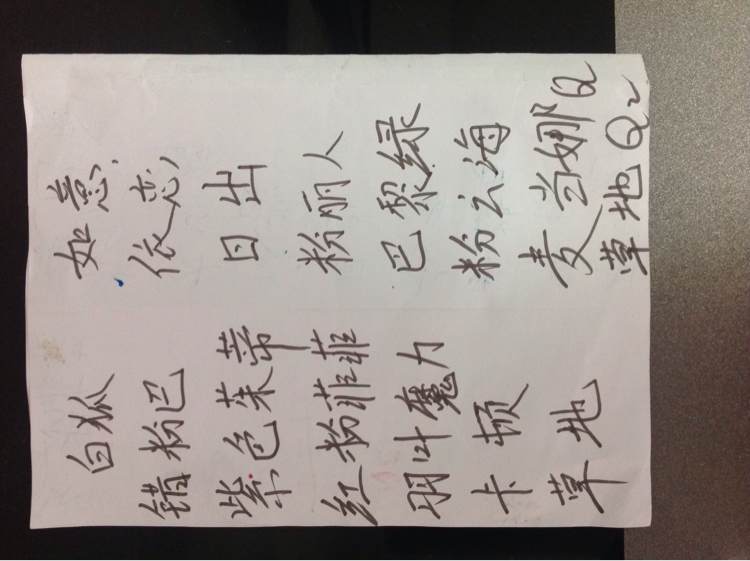 白狐 如意
错粉巴 依恋
紫色茱蒂 日出
红粉菲菲 粉丽人
羽叶魔力 巴黎绿
卡顿 粉云海
草地 麦当娜Q
草地Q2